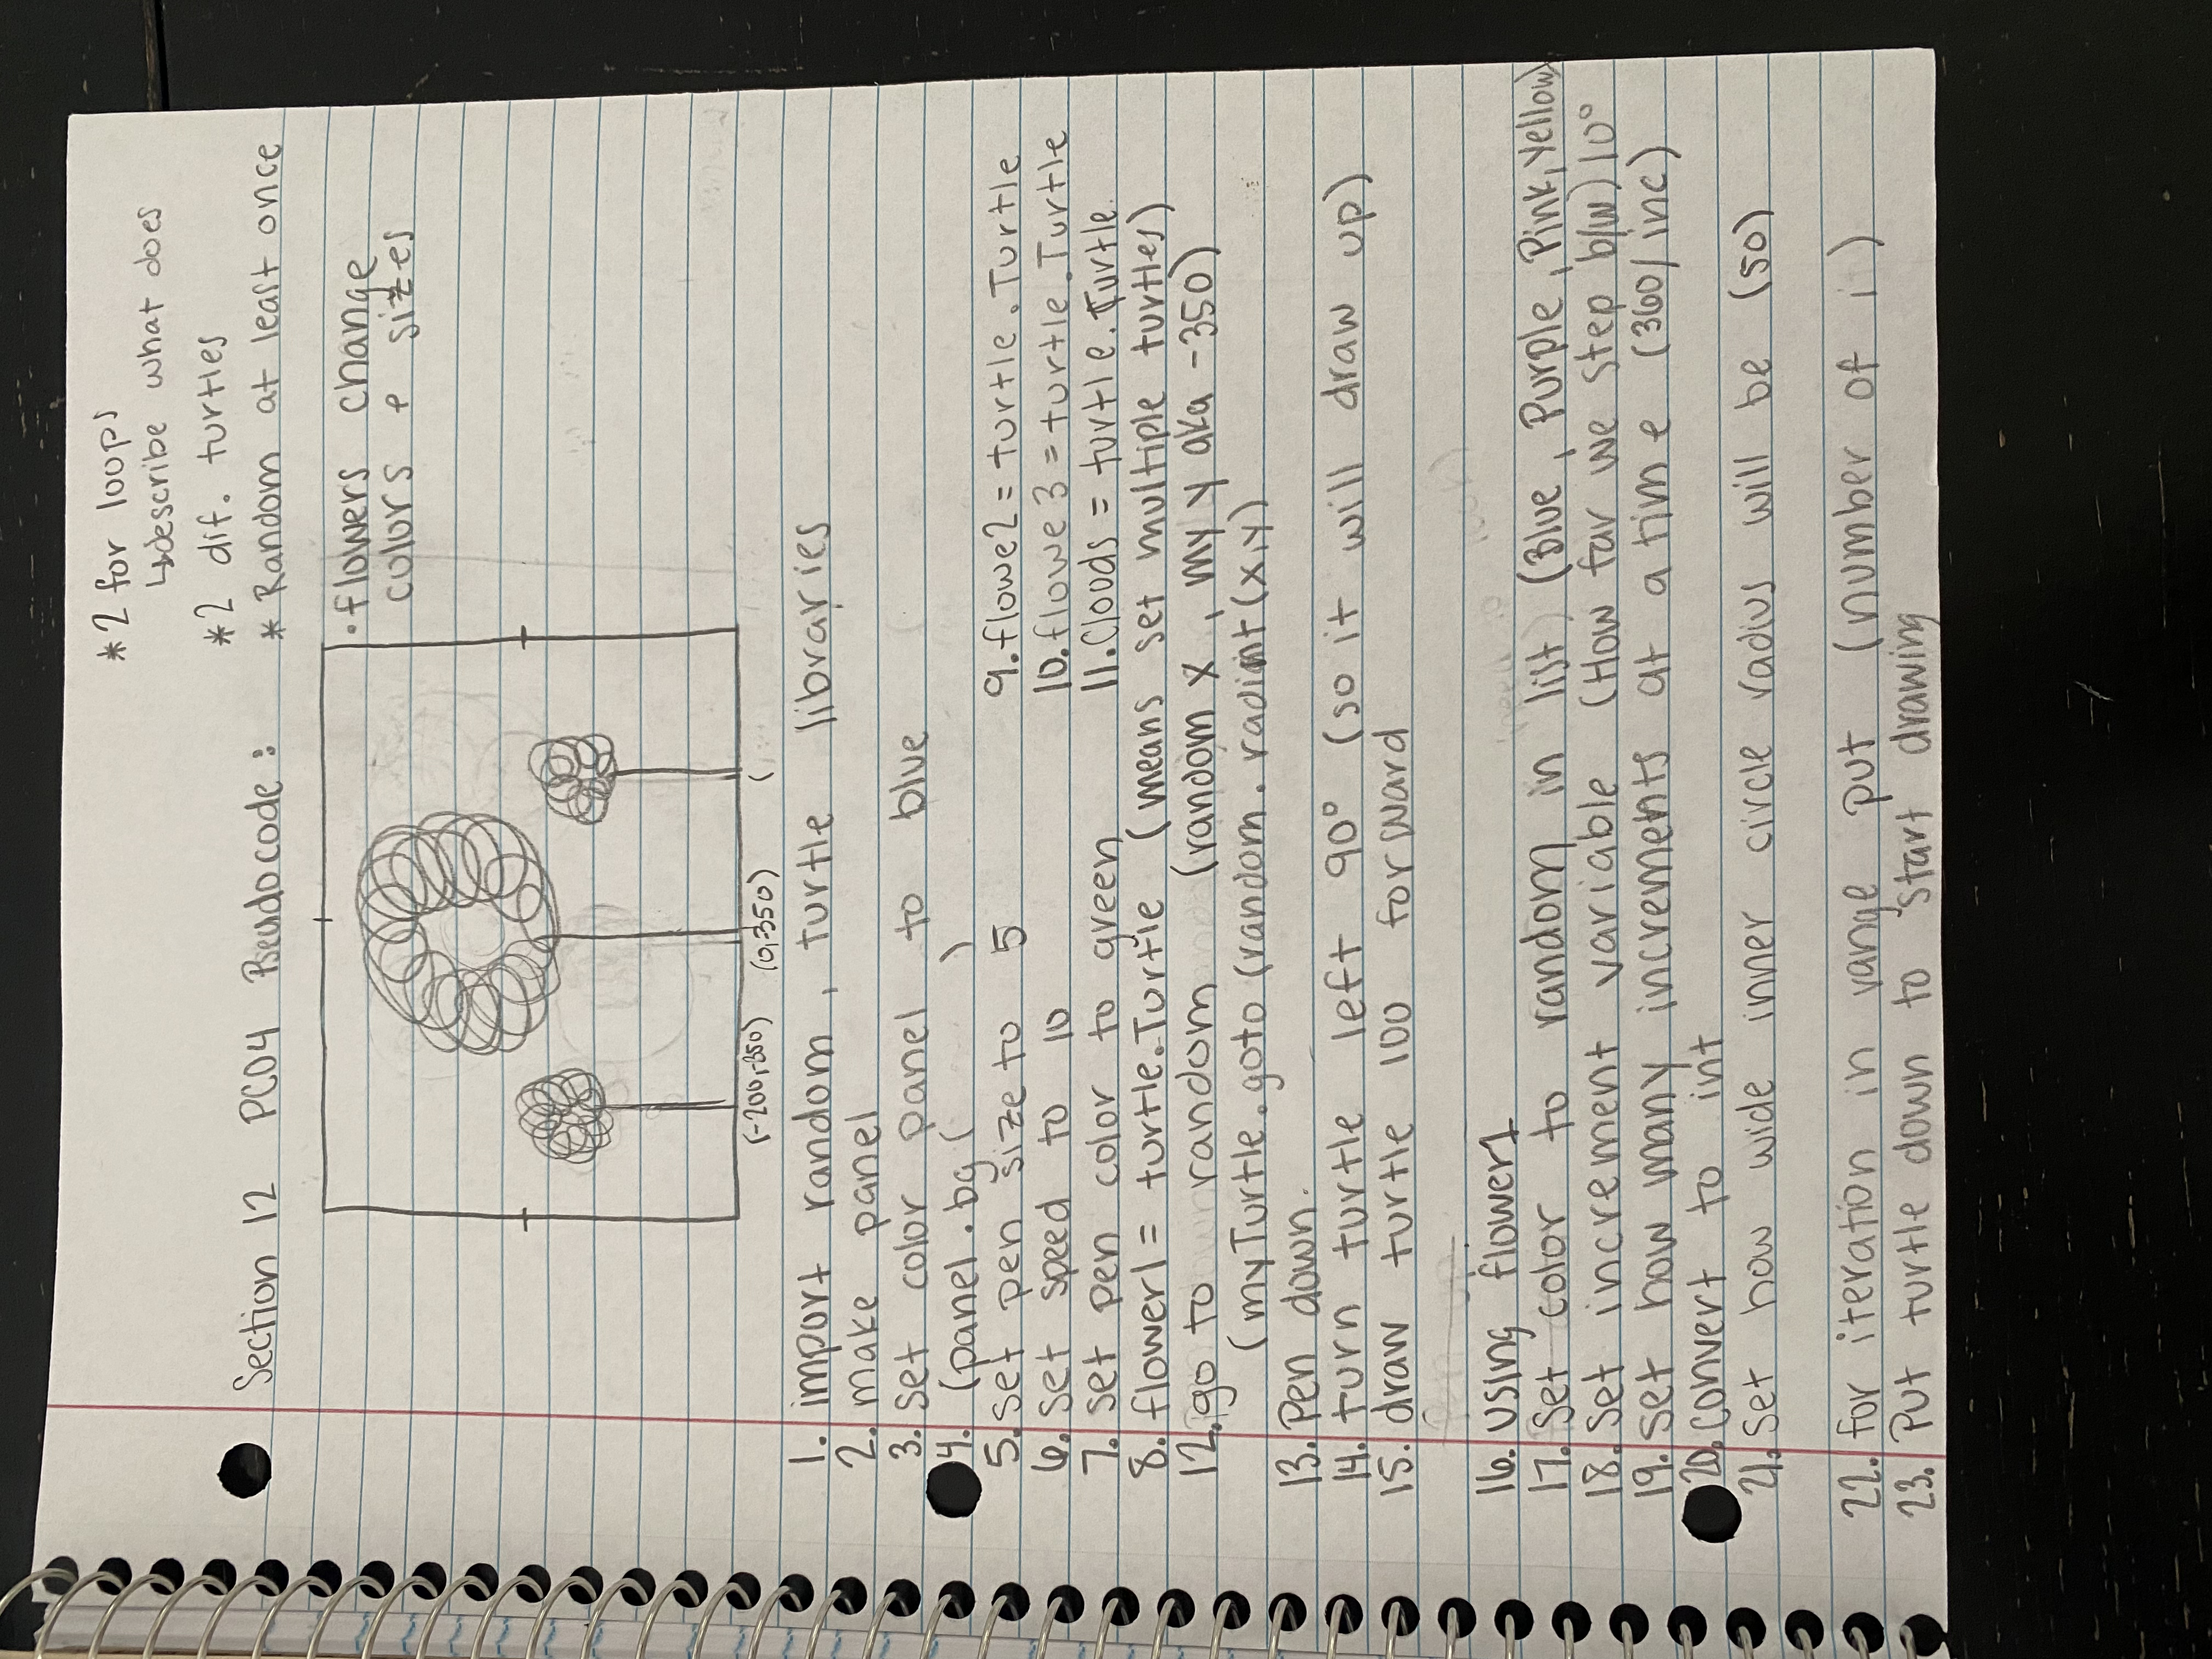 *2 for loops
↳describe what does
*2 dif. turtles
Section 12 PC04 Pseudocode:
* Random at least once
• flowers change
colors & sizes
(-200,-350) (0,-350) (
1. import random, turtle libraries
2. make panel
3. set color panel to blue
4. (panel.bg( )
5. set pen size to 5
6. set speed to 10
7. set pen color to green
8. flower1 = turtle.Turtle (means set multiple turtles)
9. flowe2 = turtle.Turtle
10. flowe 3 = turtle.Turtle
11. Clouds = turtle.Turtle.
12. go to random (random x, my y aka -350)
(myTurtle.goto (random.radint(x,y)
13. Pen down.
14. turn turtle left 90° (so it will draw up)
15. draw turtle 100 forward
16. using flower1
17. Set color to random in list (Blue, Purple, Pink, Yellow)
18. Set increment variable (How far we step b/w) 10°
19. set how many increments at a time (360/inc)
20. convert to int
21. Set how wide inner circle radius will be (50)
22. for iteration in range put (number of i)
23. Put turtle down to start drawing